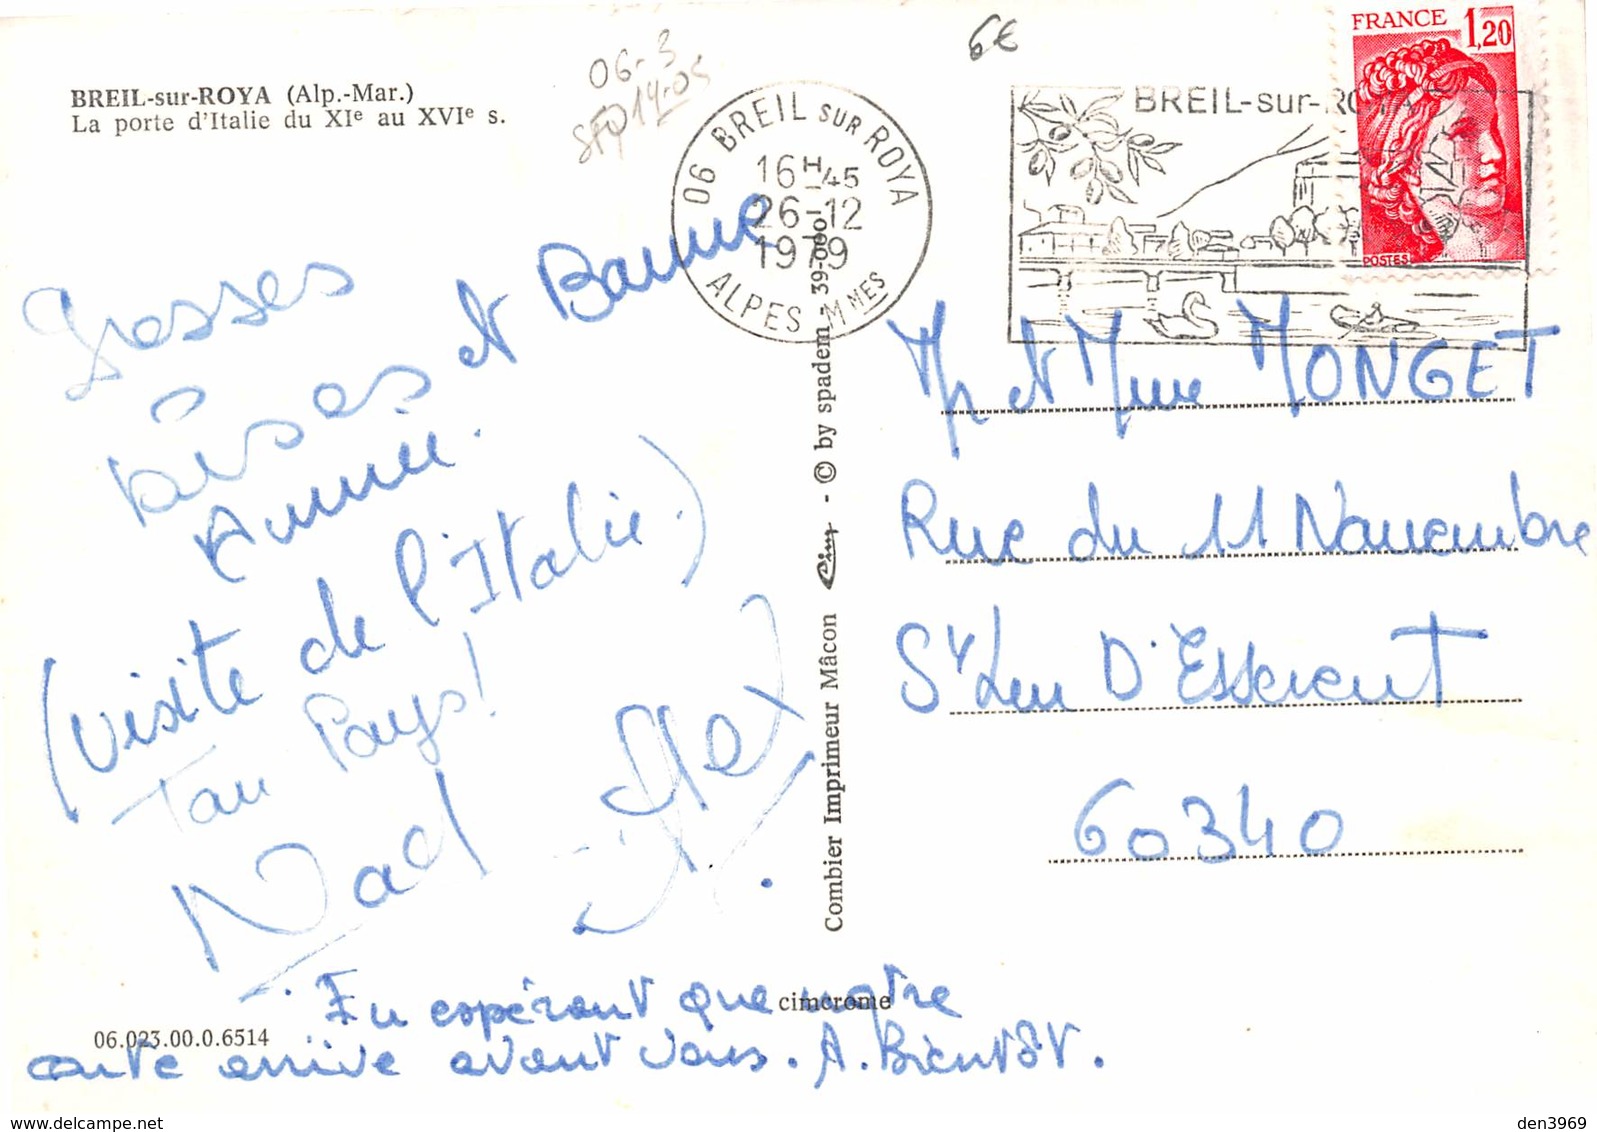 BREIL-sur-ROYA (Alp.-Mar.)
La porte d'Italie du XIe au XVIe s.
06-3
14-05
6€
06 BREIL sur ROYA
16H-45
26-12
1979
ALPES-MMES
BREIL-sur-ROYA
FRANCE 1,20
POSTES
Grosses
bises et Bonne
Année.
(Visite de l'Italie.)
Ton Pays!
Nad
En espérant que notre
carte arrive avant vous. A. Bientôt.
Mr et Mme MONGET
Rue du 11 Novembre
St Leu D'Esserent
60340
Combier Imprimeur Mâcon Cim - © by spadem - 39-000
cimcrome
06.023.00.0.6514
delcampe.net
den3969